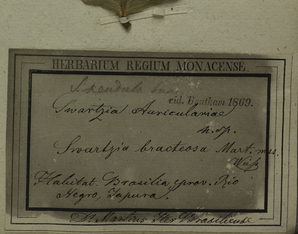 HERBARIUM REGIUM MONACENSE.
vid. Bentham 1869.
Swartzia Auriculariae
n. sp.
Swartzia bracteosa Mart. mss.
Habitat. Brasilia prov. Rio
Negro, Japura.
M. Martius Iter Brasiliense